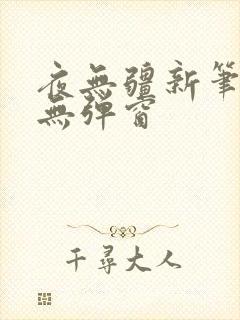 夜無疆新筆
無彈窗
千尋大人